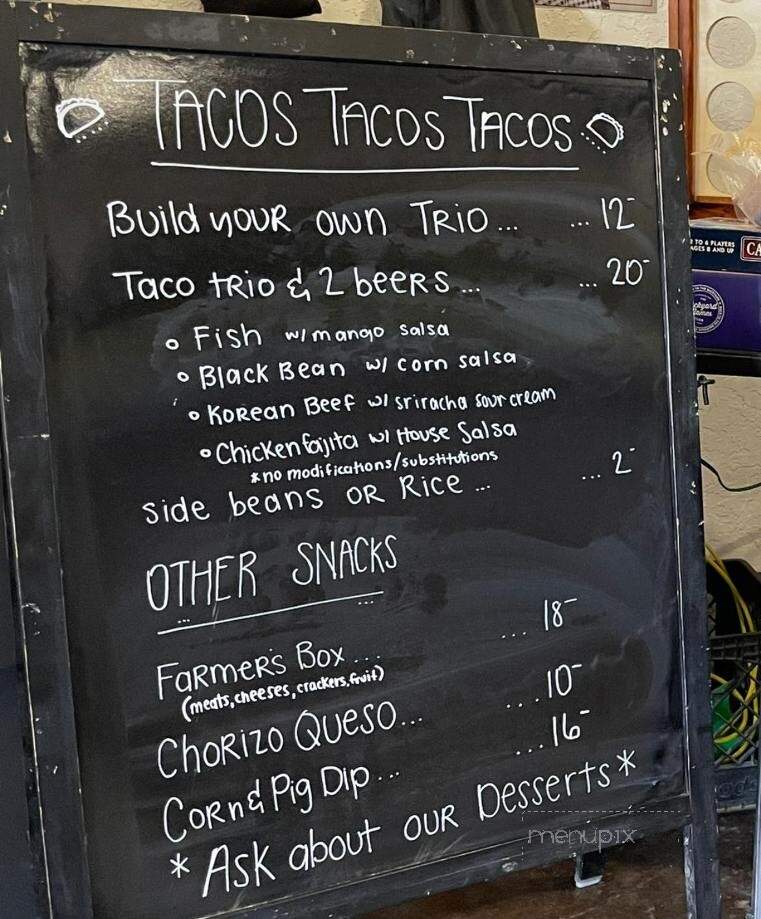 TACOS TACOS TACOS
Build your own Trio... ...12-
Taco trio & 2 beers... ...20-
Fish w/ mango salsa
Black Bean w/ corn salsa
Korean Beef w/ sriracha sour cream
Chicken fajita w/ House Salsa
*no modifications/substitutions
side beans or Rice... ...2-
OTHER SNACKS
Farmer's Box... ...18-
(meats, cheeses, crackers, fruit)
Chorizo Queso... ...10-
Corn & Pig Dip... ...16-
*Ask about our Desserts*
TO 6 PLAYERS
AGES 8 AND UP
CA
menupix